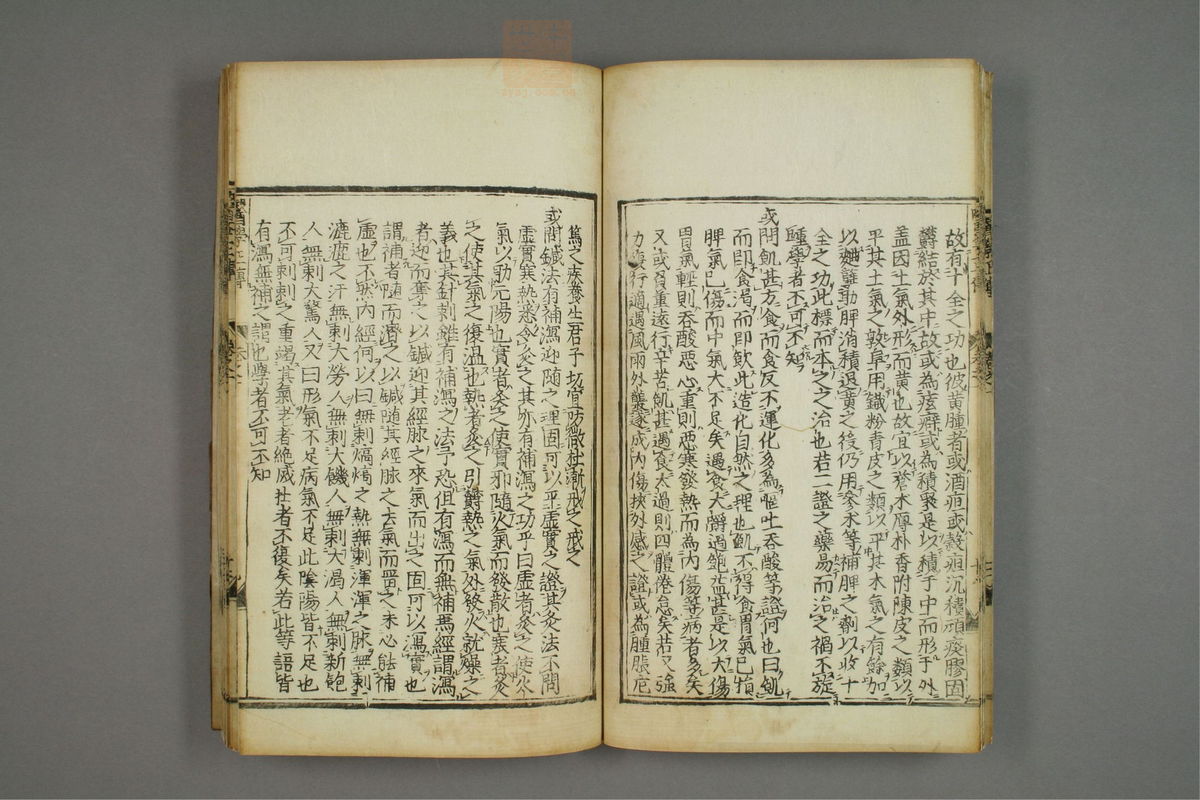 故有十全之功也彼黄腫者或酒疸或穀疸沉積頑痰膠固
欝結於其中故或為痃癖或為積聚是以積于中而形于外
盖因土氣外形而黄也故宜以蒼朮厚朴香附陳皮之類以
平其土氣之敦阜用鐵粉青皮之類以平其木氣之有餘加
以麹蘖助脾消積退黄之後仍用參朮等補脾之劑以收十
全之功此標而本之之治也若二證之藥易而治之禍不旋
踵學者不可不知
或問飢甚方食而食反不運化多為嘔吐吞酸等證何也曰飢
而即食渴而即飲此造化自然之理也飢不得食胃氣已損
脾氣已傷而中氣大不足矣遇食大嚼過飽益甚是以大傷
胃氣輕則吞酸惡心重則惡寒發熱而為内傷等病者多矣
又或負重遠行辛苦飢甚遇食太過則四體倦怠矣苦又強
力復行適遇風雨外襲遂成内傷挾外感之證或為腫脹危
篤之疾養生君子切宜防微杜漸戒之戒之
或問鍼法有補瀉迎随之理固可以平虚實之證其灸法不問
虚實寒熱悉令灸之其亦有補瀉之功乎曰虚者灸之使火
氣以助元陽也實者灸之使實邪随火氣而發散也寒者灸
之使其氣之復温也熱者灸之引欝熱之氣外發火就燥之
義也其針刺雖有補瀉之法予恐但有瀉而無補焉經謂瀉
者迎而奪之以鍼迎其經脉之來氣而出之固可以瀉實也
謂補者随而濟之以鍼随其經脉之去氣而留之未必能補
虚也不然内經何以曰無刺熇熇之熱無刺渾渾之脉無刺
漉漉之汗無刺大勞人無刺大饑人無刺大渴人無刺新飽
人無刺大驚人又曰形氣不足病氣不足此陰陽皆不足也
不可刺刺之重竭其氣老者絶滅壮者不復矣若此等語皆
有瀉無補之謂也學者不可不知